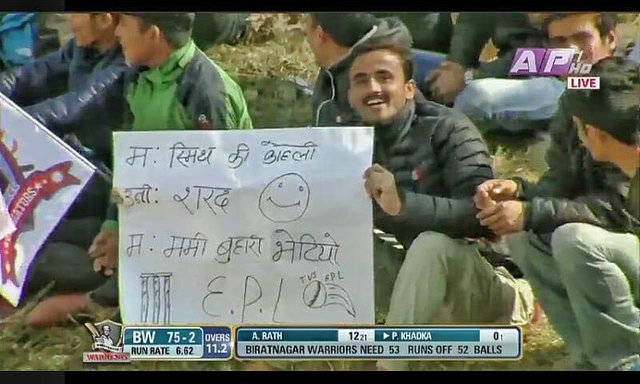 AP HD
LIVE
म : स्मिथ की कोहली
उनी : शरद
म : ममी बुहारी भेटियो
E.P.L
TVS EPL
WARRIORS
BW 75-2
RUN RATE 6.62
OVERS
11.2
A. RATH 12 21 P. KHADKA 0 1
BIRATNAGAR WARRIORS NEED 53 RUNS OFF 52 BALLS